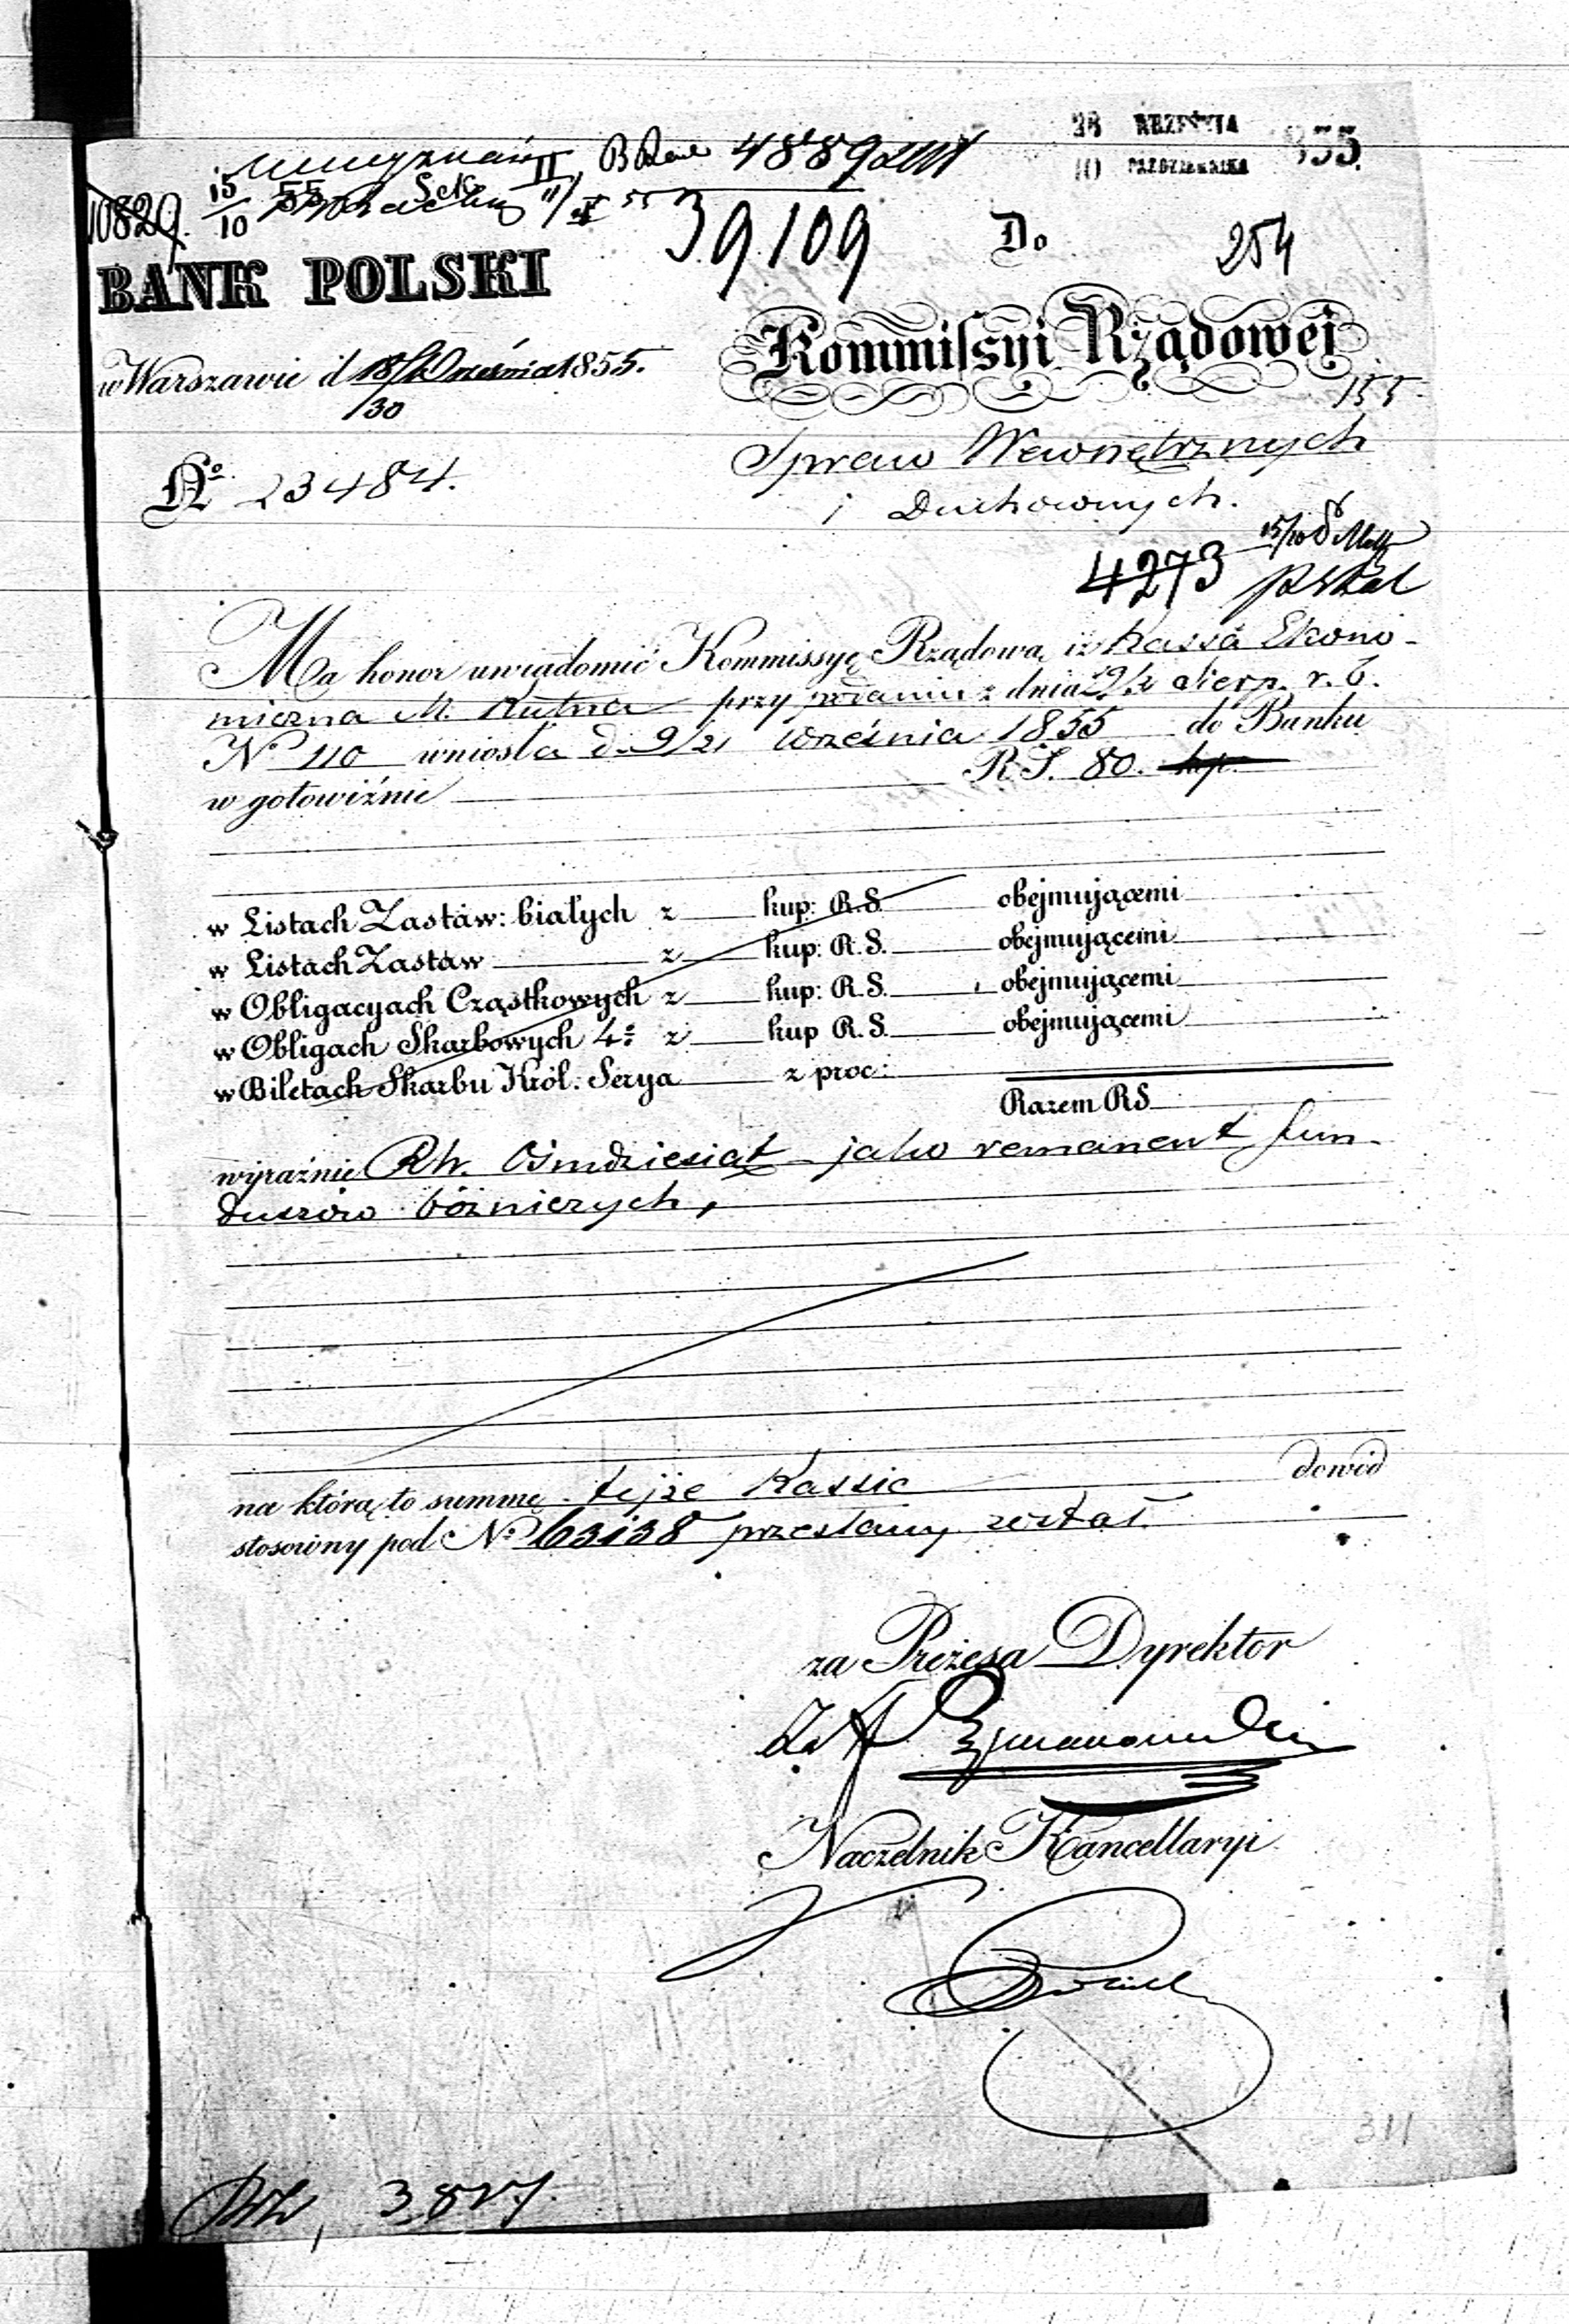 28 WRZEŚNIA 855.
10 PAŹDZIERNIKA
4889
10829. 15/10 55
39109
Do
254
BANK POLSKI
Kommissyi Rządowej
w Warszawie d 18/30 Września 1855.
155
Spraw Wewnętrznych
i Duchownych.
No. 23484.
15/10
4273
Ma honor uwiadomić Kommissyę Rządową iż Kassa Ekono-
miczna M. Kutna przy podaniu z dnia Sierp. r. b.
No 110 wniosła d. 9/21 Września 1855 do Banku
w gotowiźnie R.S. 80. kop.
w Listach Zastaw: białych z kup: R.S. obejmującemi
w Listach Zastaw z kup: R.S. obejmującemi
w Obligacyach Cząstkowych z kup: R.S. obejmującemi
w Obligach Skarbowych 4% z kup R.S. obejmującemi
w Biletach Skarbu Król: Serya z proc:
Razem RS
wyraźnie Rb. Ośmdziesiąt jako remanent fun-
duszów bóżniczych,
na którą to summę tejże Kassie dowód
stosowny pod No 63138 przesłany został.
za Prezesa Dyrektor
Naczelnik Kancellaryi
311